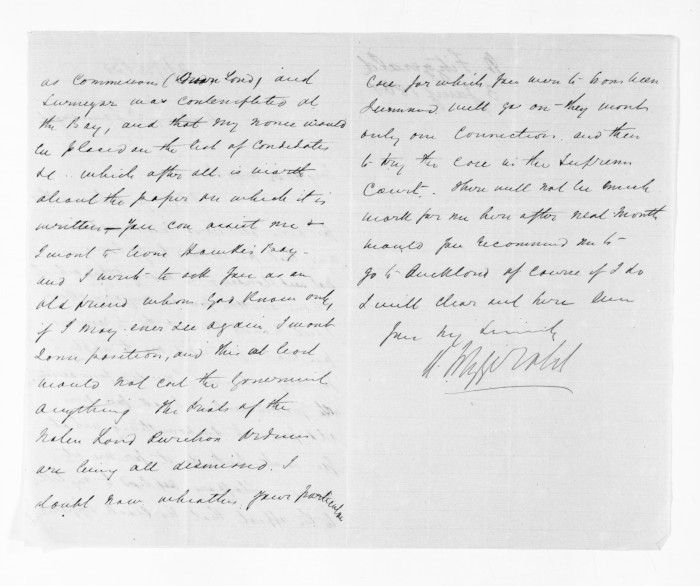 as Commissions (Crown Lond) and
Surveyor was contemplated at
the Bay, and that my name would
be placed on the list of Candidates
&c. which after all is worth
about the paper on which it is
written – You can assist me &
I want to leave Hawkes Bay.
and I write to ask you as an
old friend whom God Knows only,
if I may ever see again. I want
Some position, and this at least
would not cost the Government
anything The trials of the
Native Land Purchase Ordinance
are being all dismissed. I
doubt now whether your particular
case for which you were to have been
Summoned will go on – they want
only one Conviction and then
to try the case in the Supreme
Court. There will not be much
work for me here after next Month
would you recommend me to
go to Auckland of course if I do
I will clear out here
you my Sincerely
Fitzgerald